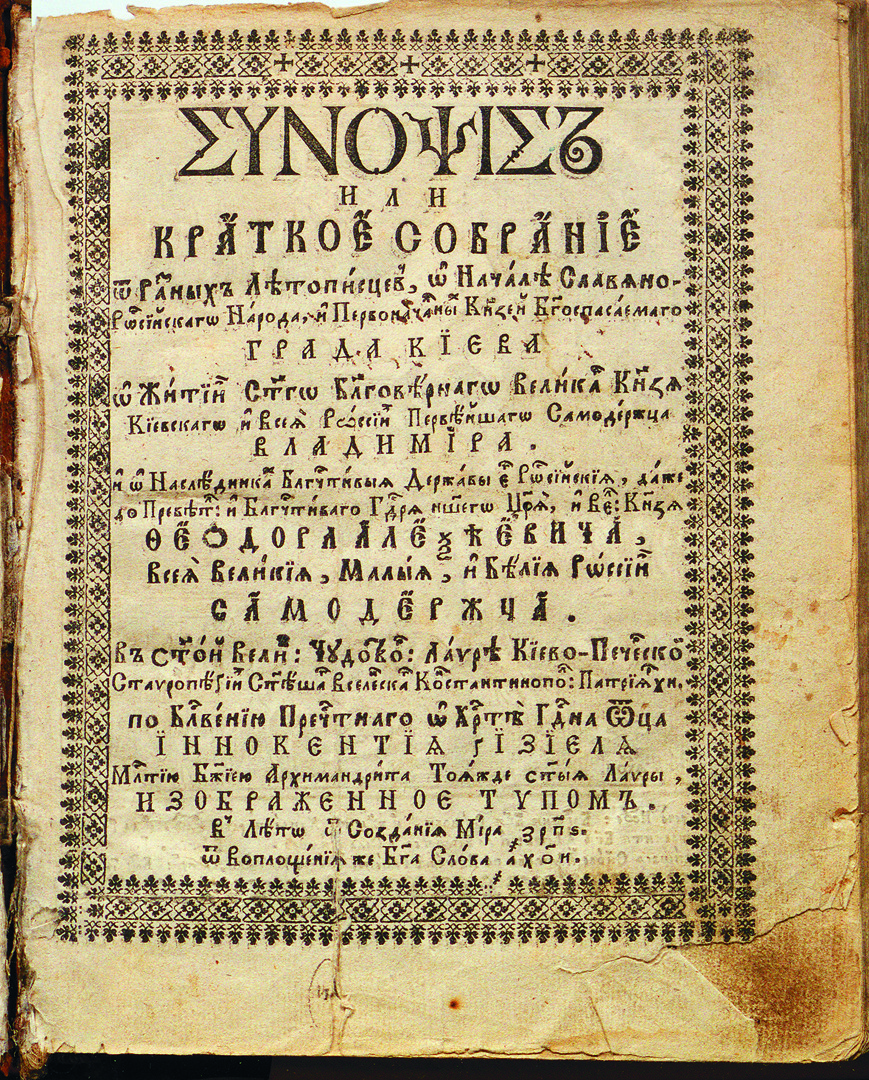 ΣΥΝΟΨΙΣЪ
ИЛИ
КРА́ТКОЕ СОБРА́НІЕ
ѿ Ра́зныхъ Лѣтопи́сцевъ, ѡ҆ Нача́лѣ Славѧно-
Рѡссі́йскагѡ Наро́да, и҆ Первонача́лныхъ Кн҃зей Бг҃оспаса́емагѡ
ГРАДА КІЕВА
ѡ҆ Житїи҆ Ст҃гѡ Бл҃говѣ́рнагѡ Вели́кагѡ Кн҃зѧ
Кіевскагѡ и҆ Всеѧ̀ Рѡссі́и Первѣ́йшагѡ Самоде́ржца
ВЛАДИМІ́РА.
и҆ ѡ҆ Наслѣ́дникахъ Бл҃гч҇ти́выѧ Держа́вы є҆гѡ̀ Рѡссі́йскїѧ, да́же
до Пресвѣ́т: и҆ Бл҃гч҇ти́вагѡ Гд҇рѧ на́шегѡ Цр҃ѧ̀, и҆ Вел: Кн҃зѧ
ѲЕО́ДОРА АЛЕѮЕ́ЕВИЧА,
всеѧ̀ Вели́кїѧ, Ма́лыѧ, и҆ Бѣ́лїѧ Рѡссі́и
САМОДЕ́РЖЦА.
въ ст҃о́й вели́к: Чудотво́р: Ла́ѵрѣ Кіево-Пече́рской
Стаѵропигі́ѡнъ Ст҃ѣ́йшагѡ Вселе́нскагѡ Кѡнстантинопо́л: Патрїа́рхи.
по Бл҃гве́нїю Преч҇тнагѡ ѡ҆ Хр҇тѣ̀ Гд҇на Ѻ҆тца̀
І҆ННОКЕНТІѦ ГІЗІЕЛѦ
Мл҇тїю Бж҃їею Архимандри́та Тоѧ́жде ст҃ы́ѧ Ла́ѵры,
ИЗОБРАЖЕННОЕ ТУПОМЪ.
в Лѣ́то ѿ Созда́нїѧ Мі́ра ҂зрпѕ.
ѿ Воплоще́нїѧ же Бг҃а Сло́ва ҂а҃хои.